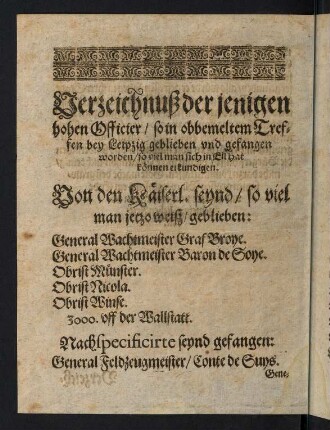 Verzeichnuß der jenigen
hohen Officier / so in obbemeltem Tref-
fen bey Leipzig geblieben vnd gefangen
worden / so viel man sich in Eil hat
können erkundigen.
Von den Käiserl. seynd / so viel
man jetzo weiß / geblieben:
General Wachtmeister Graf Broye.
General Wachtmeister Baron de Soye.
Obrist Münster.
Obrist Nicola.
Obrist Winse.
3000. vff der Wallstatt.
Nachspecificirte seynd gefangen:
General Feldzeugmeister / Conte de Suys.
Gene-